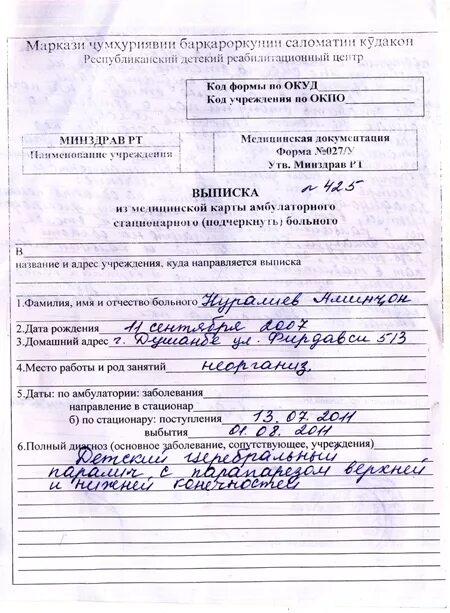 Маркази ҷумҳуриявии барқароркунии саломатии кӯдакон
Республиканский детский реабилитационный центр
Код формы по ОКУД
Код учреждения по ОКПО
МИНЗДРАВ РТ
Наименование учреждения
Медицинская документация
Форма №027/У
Утв. Минздрав РТ
ВЫПИСКА № 425
из медицинской карты амбулаторного
стационарного (подчеркнуть) больного
В
название и адрес учреждения, куда направляется выписка
1.Фамилия, имя и отчество больного Нуралиев Аминҷон
2.Дата рождения 11 сентября 2007
3.Домашний адрес г. Душанбе ул. Фирдавси 5/3
4.Место работы и род занятий неорганиз.
5.Даты: по амбулатории: заболевания
направление в стационар
б) по стационару: поступления 13.07.2011
выбытия 01.08.2011
6.Полный диагноз (основное заболевание, сопутствующее, учреждения)
Детский церебральный
паралич с парапарезом верхней
и нижней конечностей